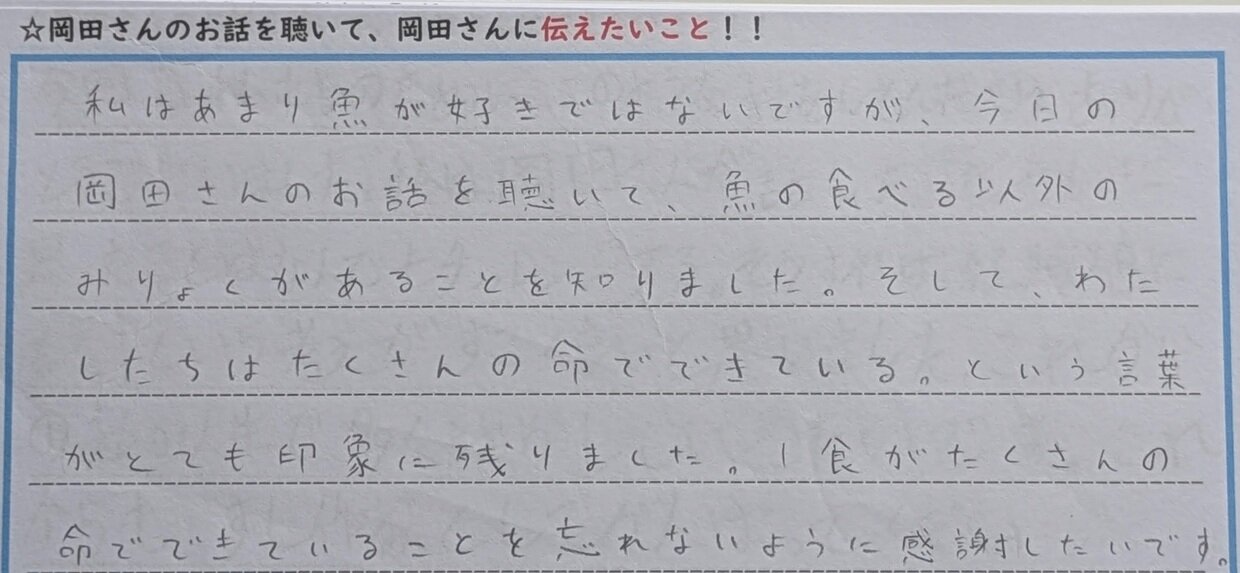 ☆岡田さんのお話を聴いて、岡田さんに伝えたいこと！！
私はあまり魚が好きではないですが、今日の
岡田さんのお話を聴いて、魚の食べる以外の
みりょくがあることを知りました。そして、わた
したちはたくさんの命でできている。という言葉
がとても印象に残りました。1食がたくさんの
命でできていることを忘れないように感謝したいです。